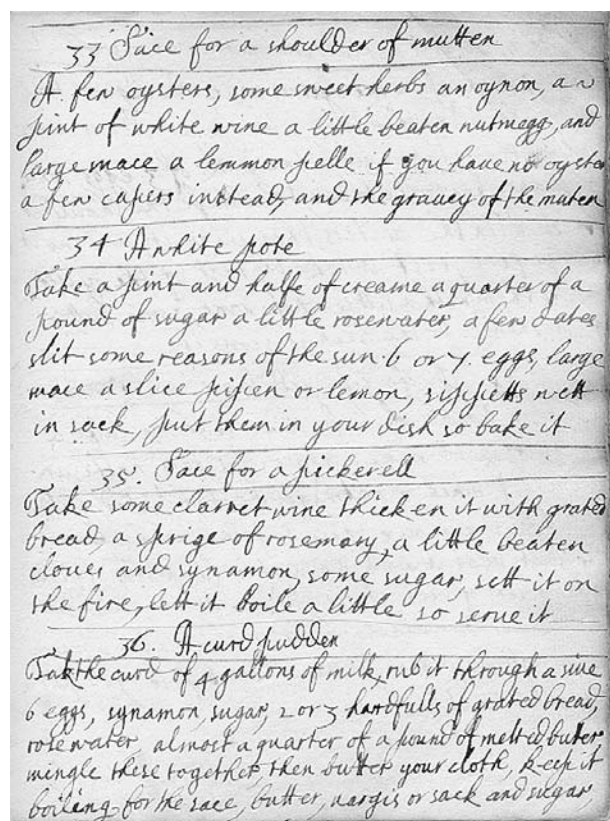 33 Sace for a shoulder of mutten
A few oysters, some sweet herbs an oynon, a
pint of white wine a little beaten nutmegg, and
large mace a lemmon pelle if you have no oyster
a few capers instead, and the gravey of the muten
34 A white pote
Take a pint and halfe of creame a quarter of a
pound of sugar a little rosewater, a few dates
slit some reasons of the sun. 6 or 7. eggs, large
mace a slice pipen or lemon, sippetts wett
in sack, put them in your dish so bake it
35. Sace for a pickerell
Take some clarret wine thicken it with grated
bread, a sprige of rosemary, a little beaten
cloves and synamon, some sugar, sett it on
the fire, lett it boile a little so serve it
36. A curd pudden
Tak the curd of 4 gallons of milk, rub it through a sive
6 eggs, synamon, sugar, 2 or 3 handfulls of grated bread,
rose water, almost a quarter of a pound of melted buter
mingle these together, then butter your cloth, keep it
boileing for the sace, butter, vargis or sack and sugar,